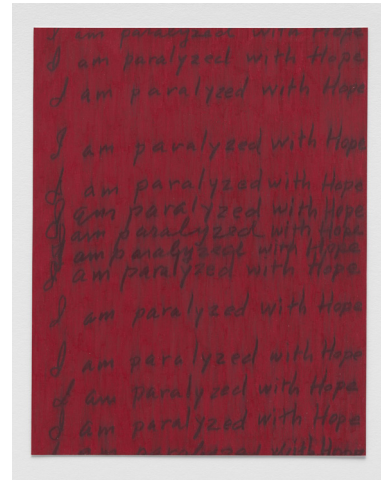 I am paralyzed with Hope
I am paralyzed with Hope
I am paralyzed with Hope
I am paralyzed with Hope
I am paralyzed with Hope
I am paralyzed with Hope
I am paralyzed with Hope
I am paralyzed with Hope
I am paralyzed with Hope
I am paralyzed with Hope
I am paralyzed with Hope
I am paralyzed with Hope
I am paralyzed with Hope
I am paralyzed with Hope